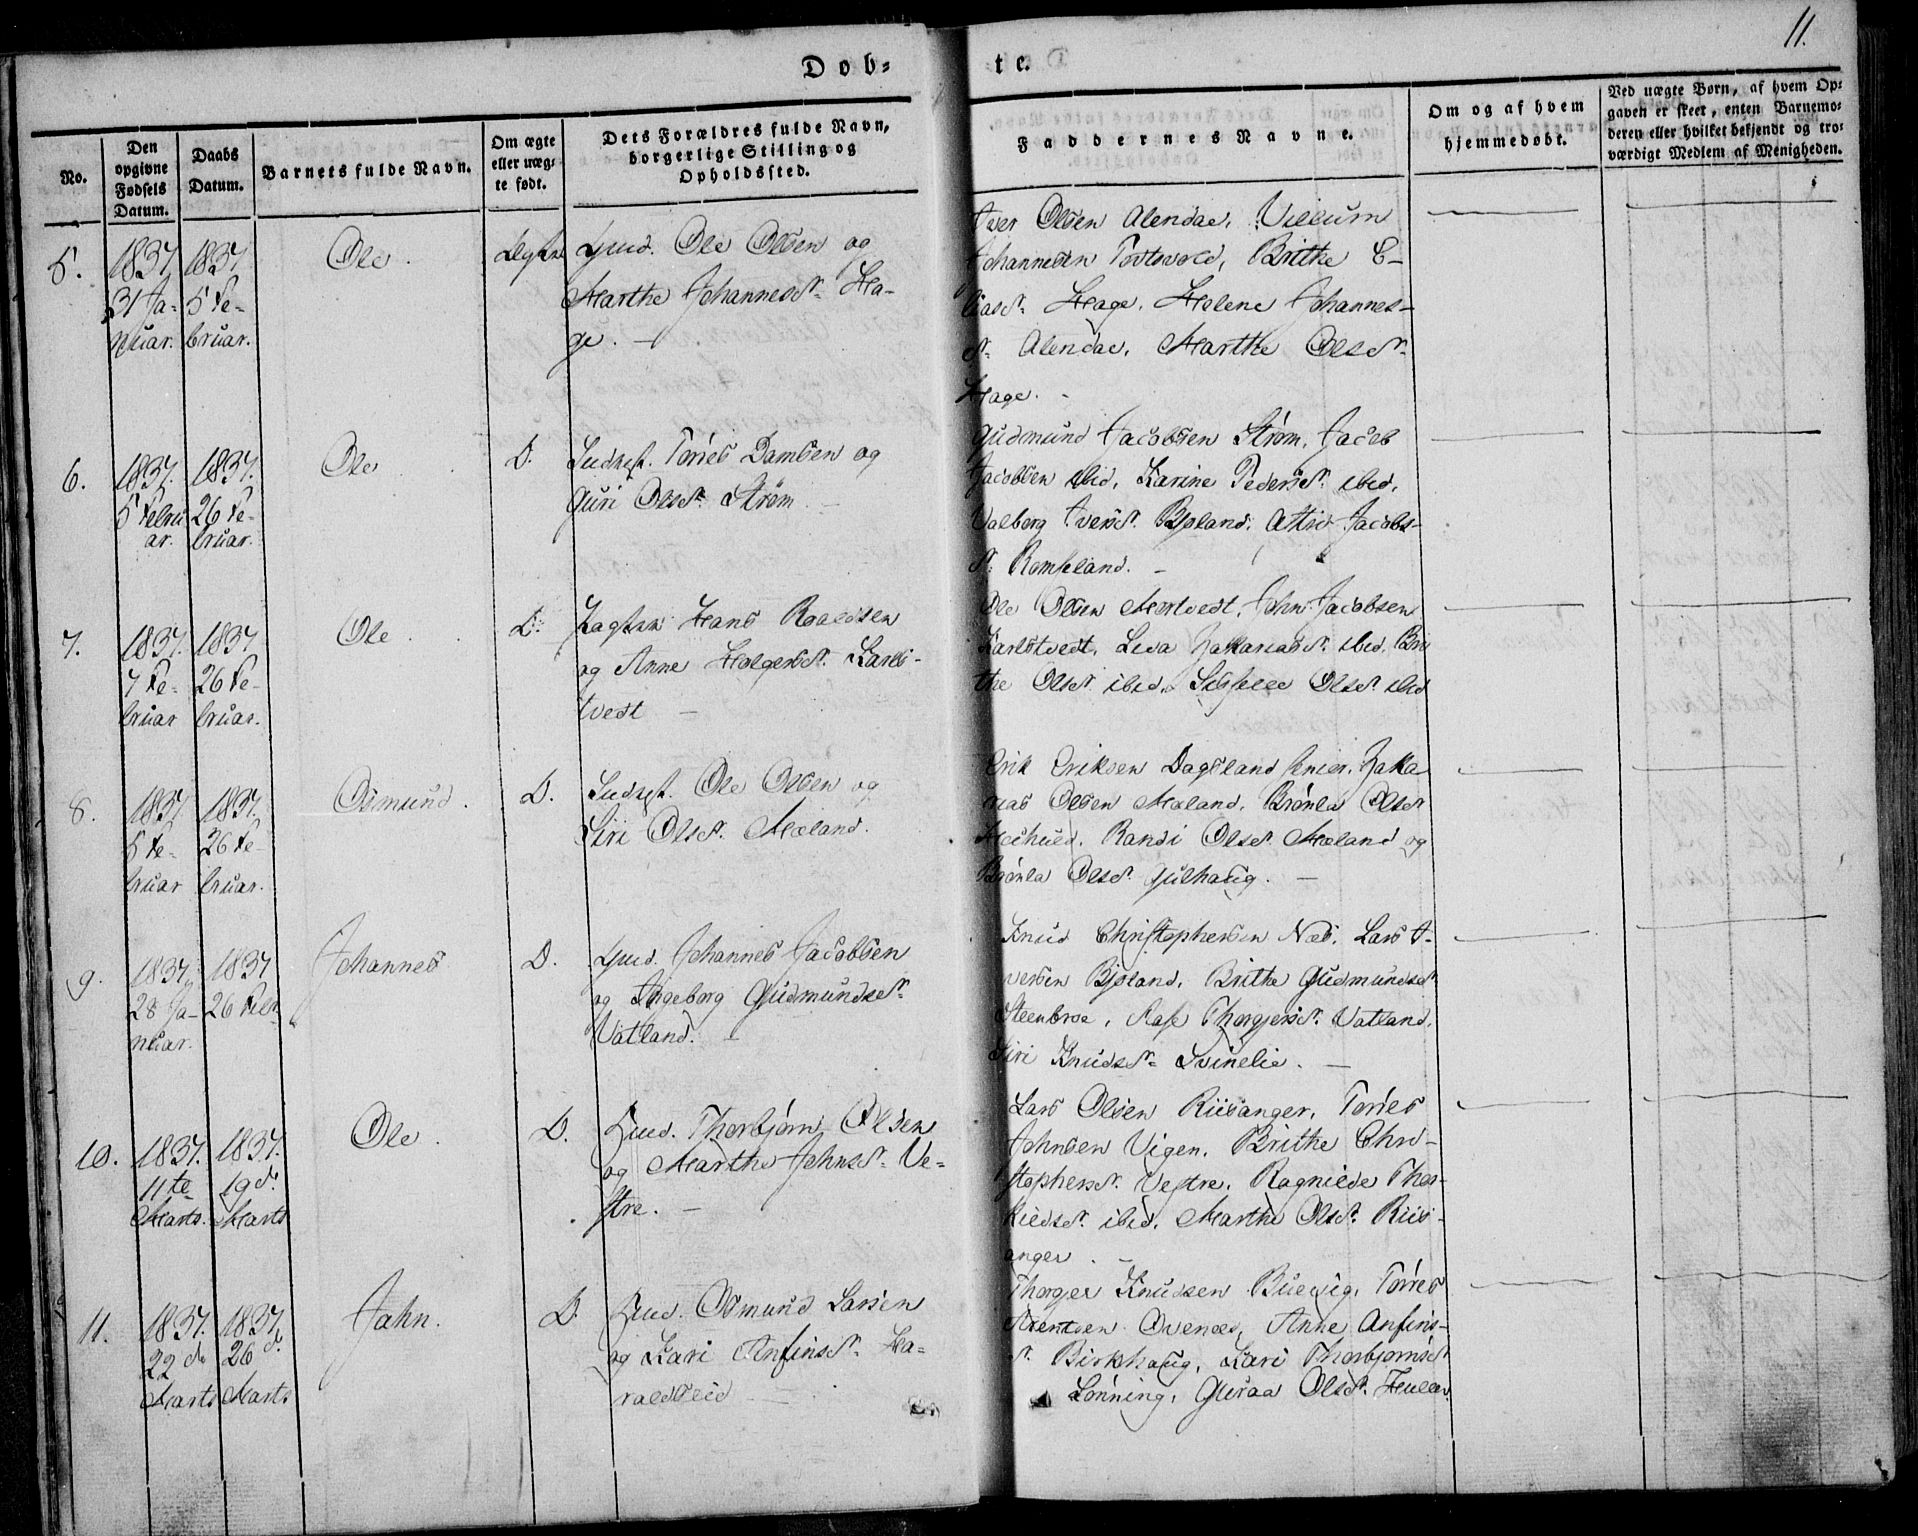 Døb-
te.
11.
No.
Den opgivne Fødsels Datum.
Daabs Datum.
Barnets fulde Navn.
Om ægte eller uægte født.
Dets Forældres fulde Navn, borgerlige Stilling og Opholdssted.
Faddernes Navne.
Om og af hvem hjemmedøbt.
Ved uægte Børn, af hvem Opgaven er skeet, enten Barnemoderen eller hvilket bekjendt og troværdigt Medlem af Menigheden.
5.
1837
31 Ja-
nuar.
1837
5 Fe-
bruar.
Ole.
Ægte
Gmd. Ole Olsen og
Marthe Johannesd. Ha-
ge. —
Iver Olsen Alendal, Villum
Johannesen Tvetvold, Brithe E-
liasd. Hage, Helene Johannes-
d. Alendal, Marthe Olsd.
Hage. -
6.
1837.
5 Febru
ar.
1837.
26 Fe-
bruar.
Ole
D.
Indregt. Torres Damsen og
Guri Olsd. Strøm. —
Gudmund Jacobsen Strøm, Jacob
Jacobsen ibid, Karine Pedersd. ibid,
Valborg Iversd. Bjoland, Jacobs-
d. Ramseland. -
7.
1837.
7 Fe-
bruar
1837
26 Fe-
bruar.
Ole
D.
Hans Roaldsen
og Anne Holgersd. Karls-
tvedt —
Ole Olsen Mortvedt, John Jacobsen
Karlstvedt, Lisa Zakariasd. ibid, Bri
the Olsd. ibid, Sidselle Olsd. ibid
8.
1837.
5 Fe-
bruar
1837.
26 Fe-
bruar.
Osmund.
D.
Indregt. Ole Olsen og
Siri Olsd. Mæland.
Erik Eriksen Dagsland senior, Zaka
rias Olsen Mæland, Brønla Olsd.
Randi Olsd. Mæland og
Brønla Olsd. Gulhaug. —
9.
1837
28 Ja-
nuar.
1837
26 Febr.
Johannes
D.
Gmd. Johannes Jacobsen
og Ingeborg Gudmundsd.
Vatland. -
Knud Christophersen Næs, Lars I-
versen Bjoland, Brithe Gudmundsd.
Steenbroe, Thorgersd. Vatland,
Siri Knudsd. Svinelie. —
10.
1837.
11te
Marts.
1837.
19 d.
Marts
Ole.
D.
Gmd. Thorbjørn Olsen
og Marthe Johnsd. Ve-
stre. —
Lars Olsen Riisanger, Torres
Johnsen Vigen, Brithe Chri-
stophersd. Vestre, Ragnilde Thor-
kildsd. ibid, Marthe Olsd. Riis-
anger. -
11.
1837.
22 d.
Marts
1837.
26 d.
Marts
John.
D.
Gmd. Osmund Larsen
og Kari Anfinsd. Ha-
raldseid —
Thorger Knudsen Buevig, Torres
Arentsen Ovenæs, Anne Anfins-
d. Birkhaug, Kari Thorbjørnsd.
Lønning, Guraa Olsd.